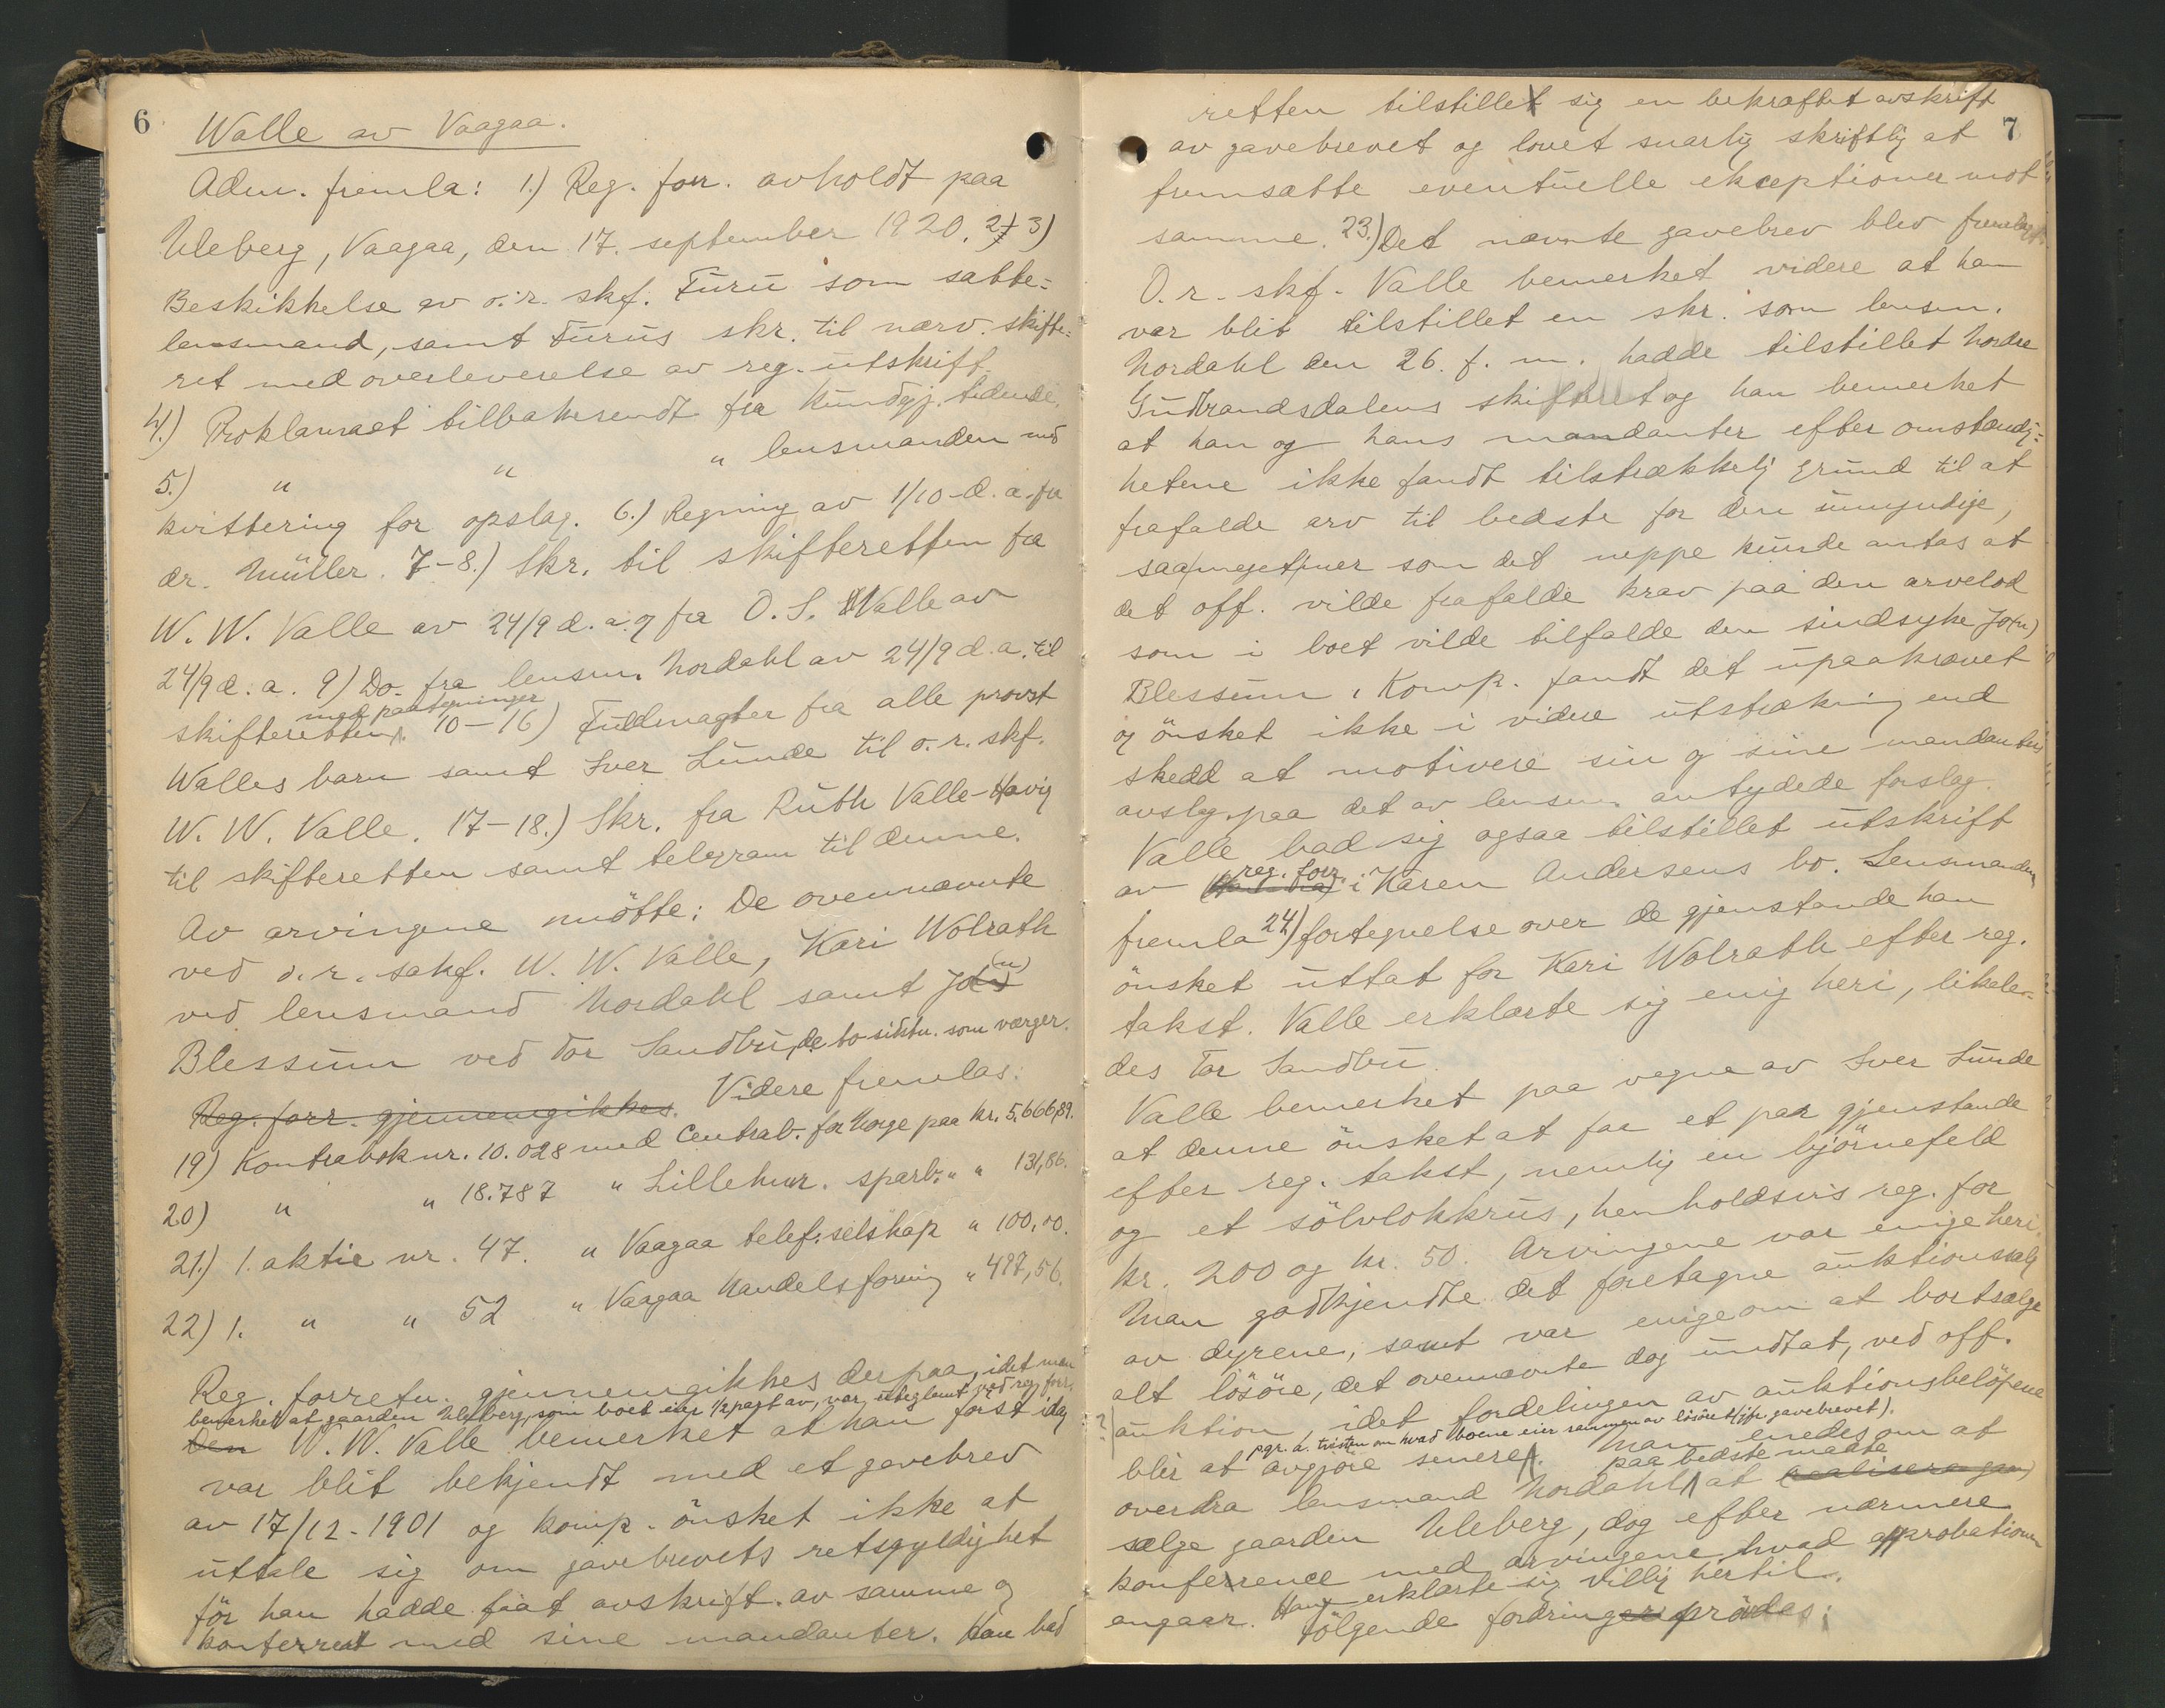 6
Walle av Vaagaa.
Adm. fremla: 1.) Reg. forr. avholdt paa
Uleberg, Vaagaa, den 17. september 1920. 2) 3)
Beskikkelse av o.r. skf. Furu som sætte-
lensmand, samt Furus skr. til nærv. skifte-
ret med overleverelse av reg. utskrift.
4.) Proklamaet tilbakesendt fra Kundgj. tidende.
5.) " " " lensmanden med
kvittering for opslag. 6.) Regning av 1/10 d. a. fra
dr. Müller. 7-8.) Skr. til skifteretten fra
W. W. Valle av 24/9 d. a. og fra O. S. Valle av
24/9 d. a. 9) Do. fra lensm. Nordahl av 24/9 d. a. til
med paategninger
skifteretten. 10-16) Fuldmagter fra alle provst
Walles barn samt Iver Lunde til o. r. skf.
W. W. Valle. 17-18.) Skr. fra Ruth Valle-Havig
til skifteretten samt telegram til denne.
Av arvingene mötte: De ovennævnte
ved o. r. sakf. W. W. Valle, Kari Wolrath
ved lensmand Nordahl samt Jo(n)
Blessum ved Tor Sandbu, de to sidstn. som værger.
Reg. forr. gjennemgikkes. Videre fremlas:
19) Kontrabok nr. 10.028 med Centralb. for Norge paa kr. 5.666,89.
20) " " 18.787 " Lillehmr. sparb. " " 131,86.
21.) 1. aktie nr. 47. " Vaagaa telef. selskap " 100,00.
22) 1. " " 52 " Vaagaa Handelsforening " 497,56.
Reg. forretn. gjennemgikkes derpaa, idet man
bemerket at gaarden Uleberg, som boet eier 1/2 part av, var uteglemt ved reg. forr.
Den W. W. Valle bemerket at han först idag
var blit bekjendt med et gavebrev
av 17/12-1901 og komp. önsket ikke at
uttale sig om gavebrevets retsgyldighet
för han hadde faat avskrift av samme og
konferert med sine mandanter. Han bad
7
retten tilstillet sig en bekræftet avskrift
av gavebrevet og lovet snarlig skriftlig at
fremsætte eventuelle ekceptioner mot
samme. 23.) Det nævnte gavebrev blev fremlagt.
O. r. skf. Valle bemerket videre at han
var blit tilstillet en skr. som lensm.
Nordahl den 26. f. m. hadde tilstillet Nordre
Gudbrandsdalens skifteret og han bemerket
at han og hans mandanter efter omstændig-
hetene ikke fandt tilstrækkelig grund til at
frafalde arv til bedste for den umyndige,
saa meget mer som det neppe kunde antas at
det off. vilde frafalde krav paa den arvelod
som i boet vilde tilfalde den sindsyke Jo(n)
Blessum. Komp. fandt det upaakrævet
og önsket ikke i videre utstrækning end
skedd at motivere sin og sine mandanters
avslag paa det av lensm. antydede forslag.
Valle bad sig ogsaa tilstillet utskrift
reg. forr.
av i Karen Andersens bo. Lensmanden
fremla 24) fortegnelse over de gjenstande han
önsket uttat for Kari Wolrath efter reg.
takst. Valle erklærte sig enig heri, likele-
des Tor Sandbu.
Valle bemerket paa vegne av Iver Lunde
at denne önsket at faa et par gjenstande
efter reg. takst, nemlig en björnefeld
og et sölvlokkrus, henholdsvis reg. for
kr. 200 og kr. 50. Arvingene var enige heri.
Man godkjendte det foretagne auktionssalg
av dyrene, samt var enige om at bortsælge
alt lösöre, det ovennævnte dog undtat, ved off.
auktion, idet fordelingen av auktionsbelöpene
pgr. a. tvisten om hvad boene eier sammen av lösöret (jfr. gavebrevet).
blir at avgjöre senere. Man enedes om at
paa bedste maate
overdra lensmand Nordahl at realisere gaar
sælge gaarden Uleberg, dog efter nærmere
konferrence med arvingene hvad approbationen
angaar. Han erklærte sig villig hertil.
Fölgende fordringer prövdes: